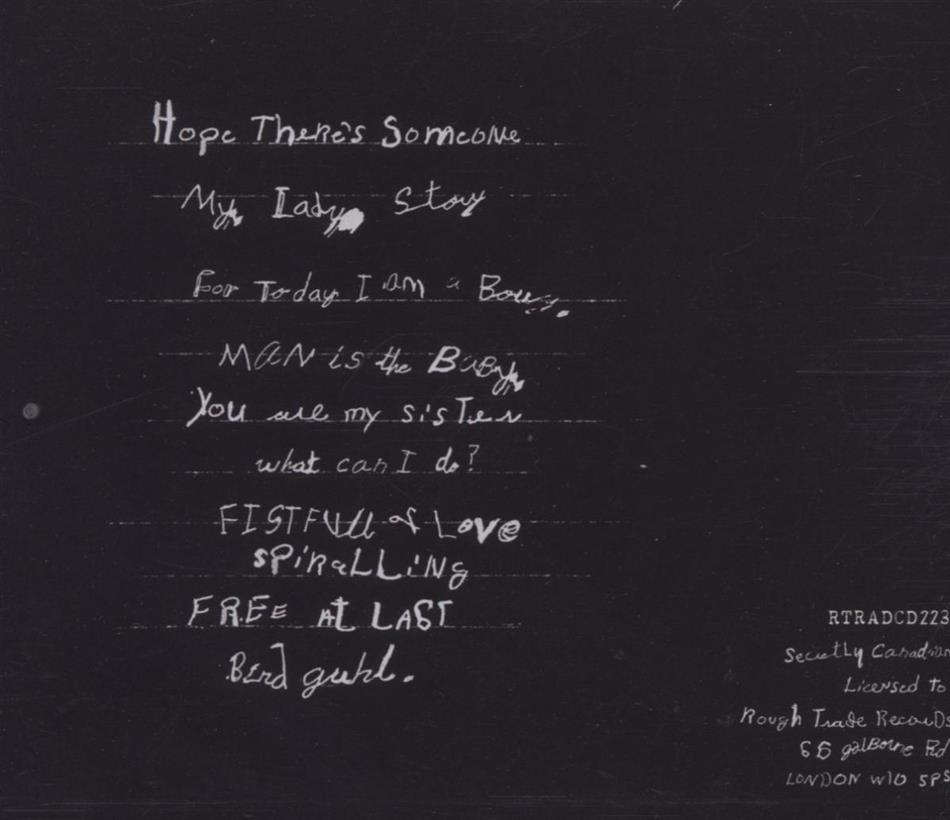 Hope There's Someone
My Lady Story
For Today I am a Boy.
MAN is the BaBy
You are my sisTer
what can I do?
FISTFUll of Love
sPiRaLLiNg
FREE AT LAST
Bird guhl.
RTRADCD223
Secretly Canadian
Licensed to
Rough Trade Records
66 golBorne Rd
LONDON W10 5PS